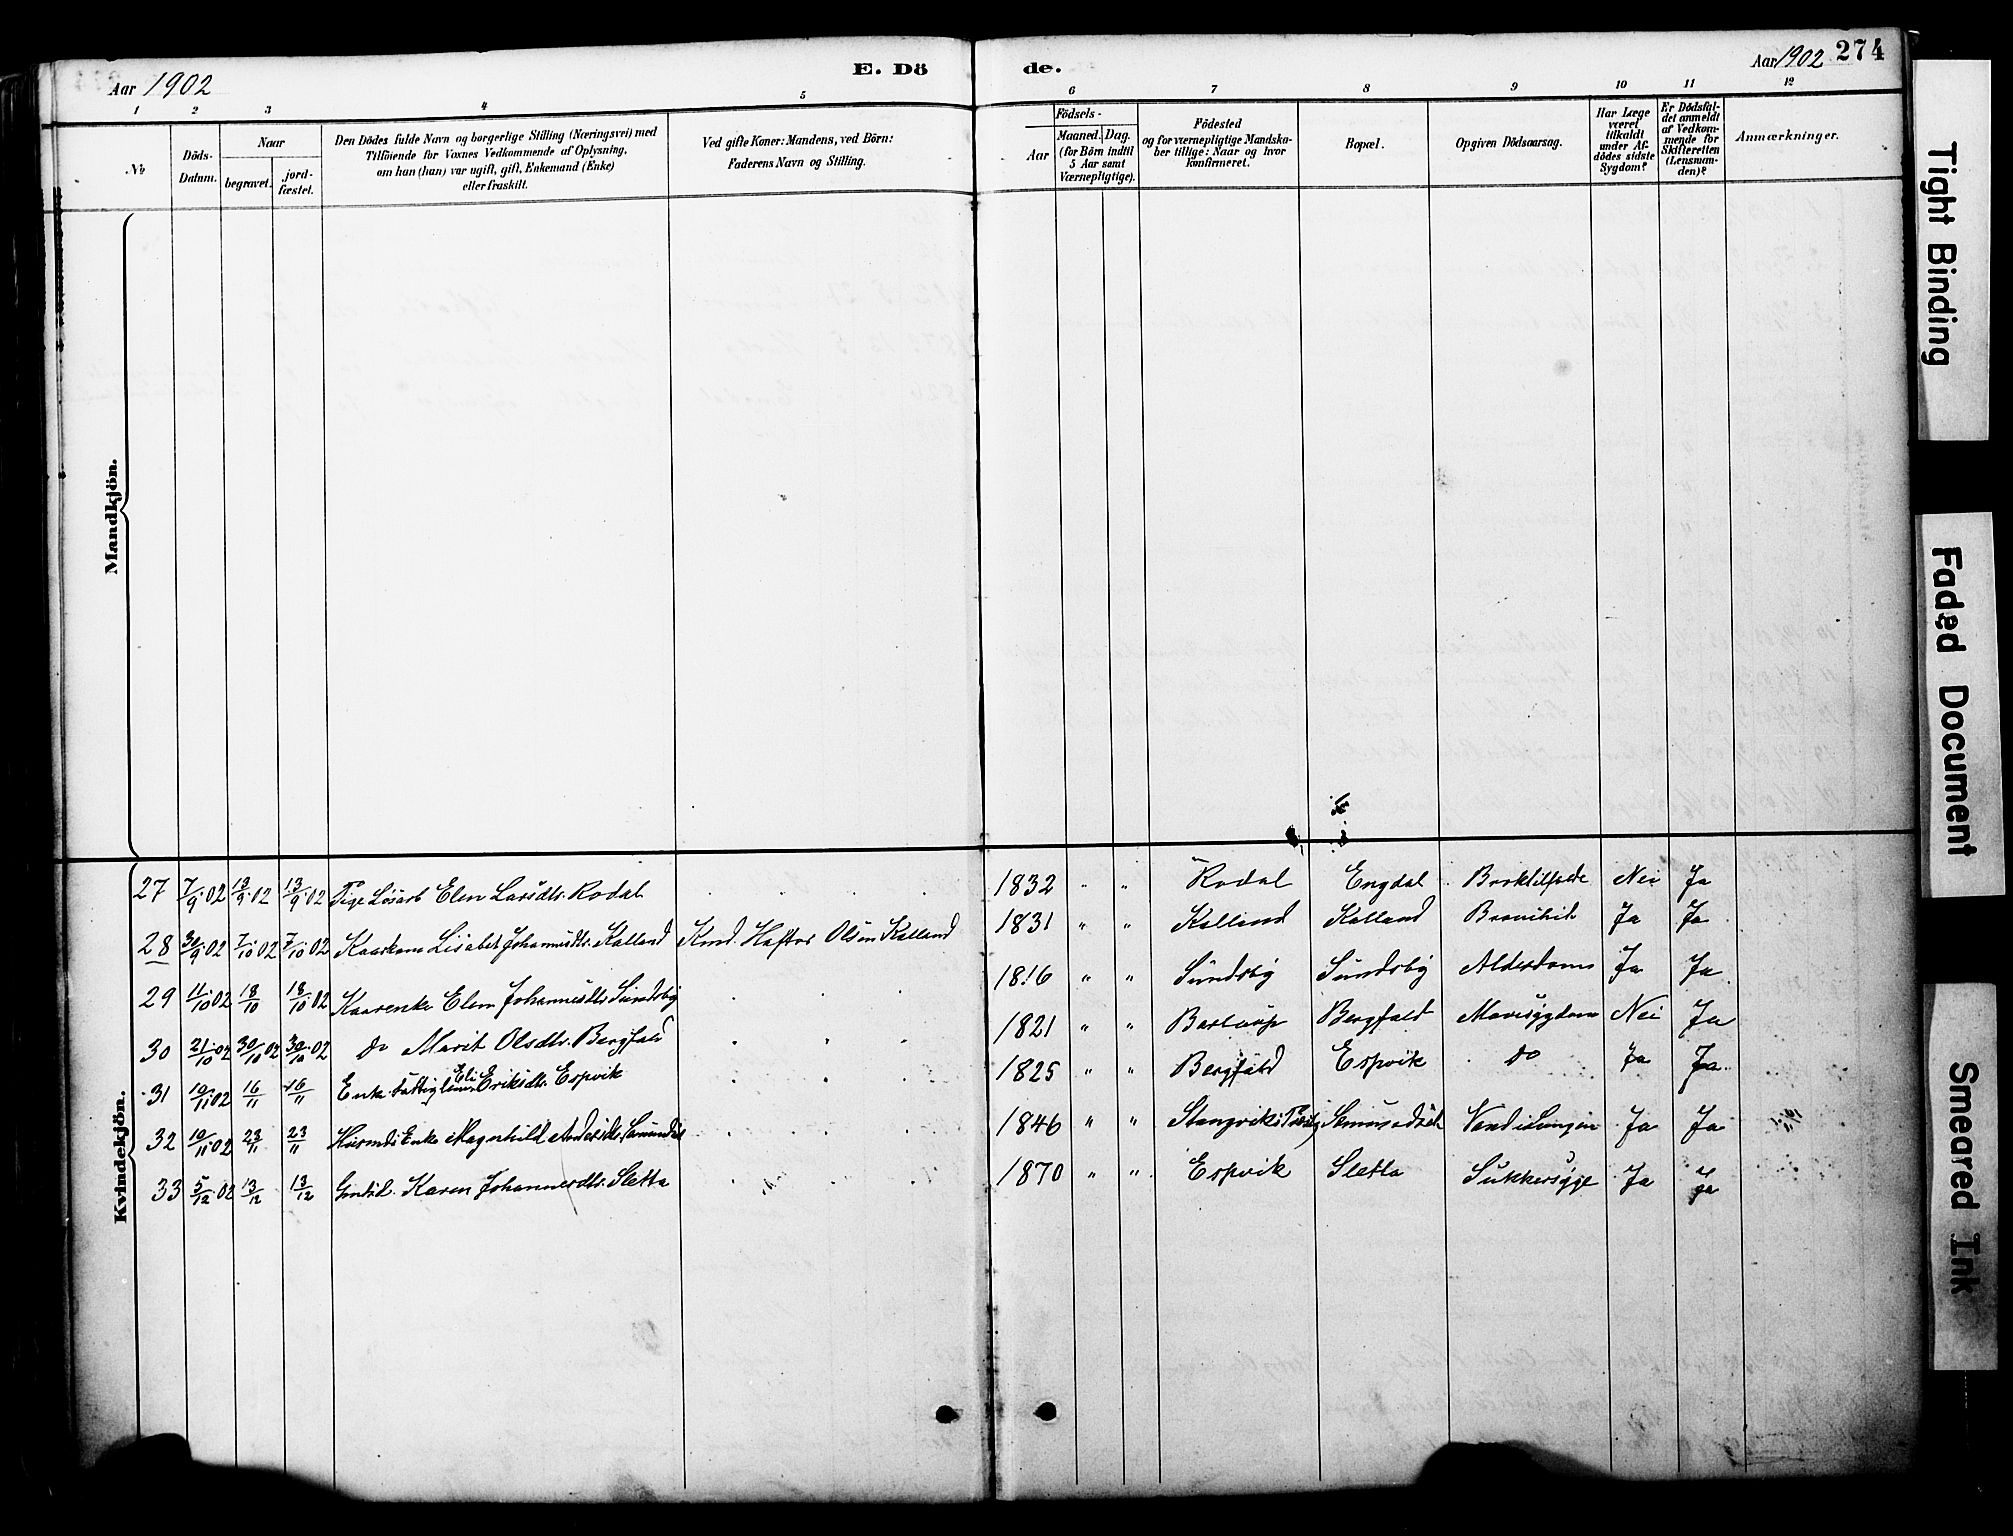 Aar 1902
E. Dö
de.
Aar 1902
274
1 2 3 4 5 6 7 8 9 10 11 12
No
Döds-
Datum.
Naar
begravet.
jord-
fæstet.
Den Dödes fulde Navn og borgerlige Stilling (Næringsvei) med
Tilföiende for Voxnes Vedkommende af Oplysning,
om han (hun) var ugift, gift, Enkemand (Enke)
eller fraskilt.
Ved gifte Koner: Mandens, ved Börn:
Faderens Navn og Stilling.
Födsels-
Aar
Maaned. Dag.
(for Börn indtil
5 Aar samt
Værnepligtige).
Födested
og for værnepligtige Mandska-
ber tillige: Naar og hvor
konfirmeret.
Bopæl.
Opgiven Dödsaarsag.
Har Læge
været
tilkaldt
under Af-
dödes sidste
Sygdom?
Er Dödsfal-
det anmeldt
af Vedkom-
mende for
Skifteretten
(Lensman-
den)?
Anmærkninger.
Mandkjön.
Kvindekjön.
27 7/9 02 13/9 02 13/9 02 Pige Løsarb Elen Larsdtr. Rodal 1832 " " Rodal Engdal Nei Ja
28 30/9 02 7/10 02 7/10 02 Kaarkone Lisabet Johannesdtr. Kalland Kmd. Haftor Olsen Kalland 1831 " " Kalland Kalland Ja Ja
29 11/10 02 18/10 18/10 02 Kaarenke Elen Johannesdtr. Sundsby 1816 " " Sundsby Sundsby Alderdoms Ja Ja
30 21/10 02 30/10 02 30/10 02 do Marit Olsdtr. Bergfald 1821 " " Bergfald Mavesygdom Nei Ja
31 10/11 02 16/11 16/11 Enke Fattiglem Eli Eriksdtr. Espvik 1825 " " Bergfald Espvik do Ja Ja
32 10/11 02 23/11 23/11 Husmds Enke Magnhild 1846 " " Stangviks Ja Ja
33 5/12 02 13/12 13/12 Karen Johannesdtr. Sletta 1870 " " Espvik Sletta Sukkersyge Ja Ja
Tight Binding
Faded Document
Smeared Ink